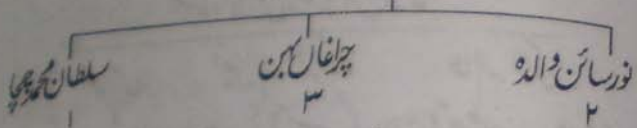 نورسائن والدہ چراغاں بہن سلطان محمد چچا
۲ ۳